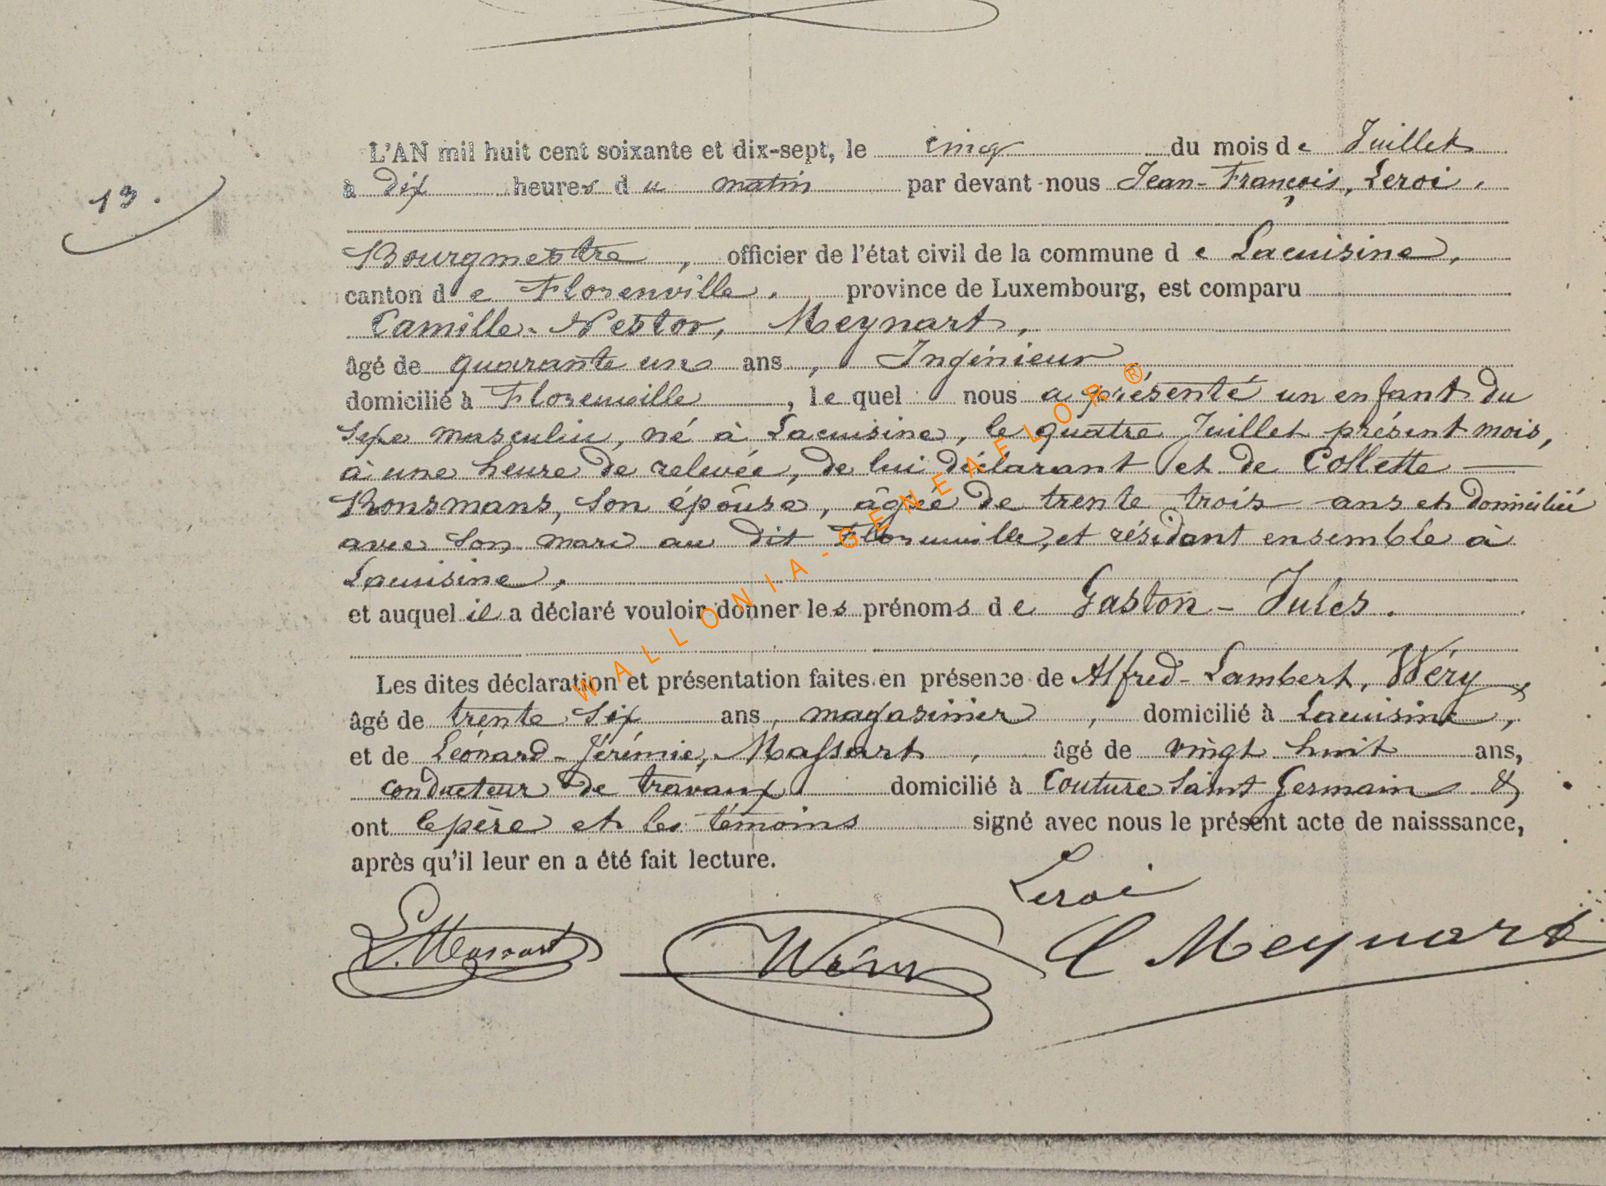 L'AN mil huit cent soixante et dix-sept, le cinq du mois de Juillet
13.
à dix heures du matin par devant nous Jean-François, Leroi,
Bourgmestre, officier de l'état civil de la commune de Lacuisine,
canton de Florenville, province de Luxembourg, est comparu
Camille-Nestor, Meynart,
âgé de quarante un ans, Ingénieur
domicilié à Florenville, lequel nous a présenté un enfant du
sexe masculin, né à Lacuisine, le quatre Juillet présent mois,
à une heure de relevée, de lui déclarant et de Collette
Ronsmans, son épouse, âgée de trente trois ans et domiciliée
avec son mari au dit Florenville, et résidant ensemble à
Lacuisine,
et auquel il a déclaré vouloir donner les prénoms de Gaston-Jules.
Les dites déclaration et présentation faites en présence de Alfred-Lambert, Wéry
âgé de trente six ans, magasinier, domicilié à Lacuisine,
et de Léonard-Jérémie, Massart, âgé de vingt huit ans,
conducteur de travaux domicilié à Couture Saint Germain &
ont le père et les témoins signé avec nous le présent acte de naisssance,
après qu'il leur en a été fait lecture.
Leroi
L. Massart Wéry C Meynart
WALLONIA-GENEAFLOR ®